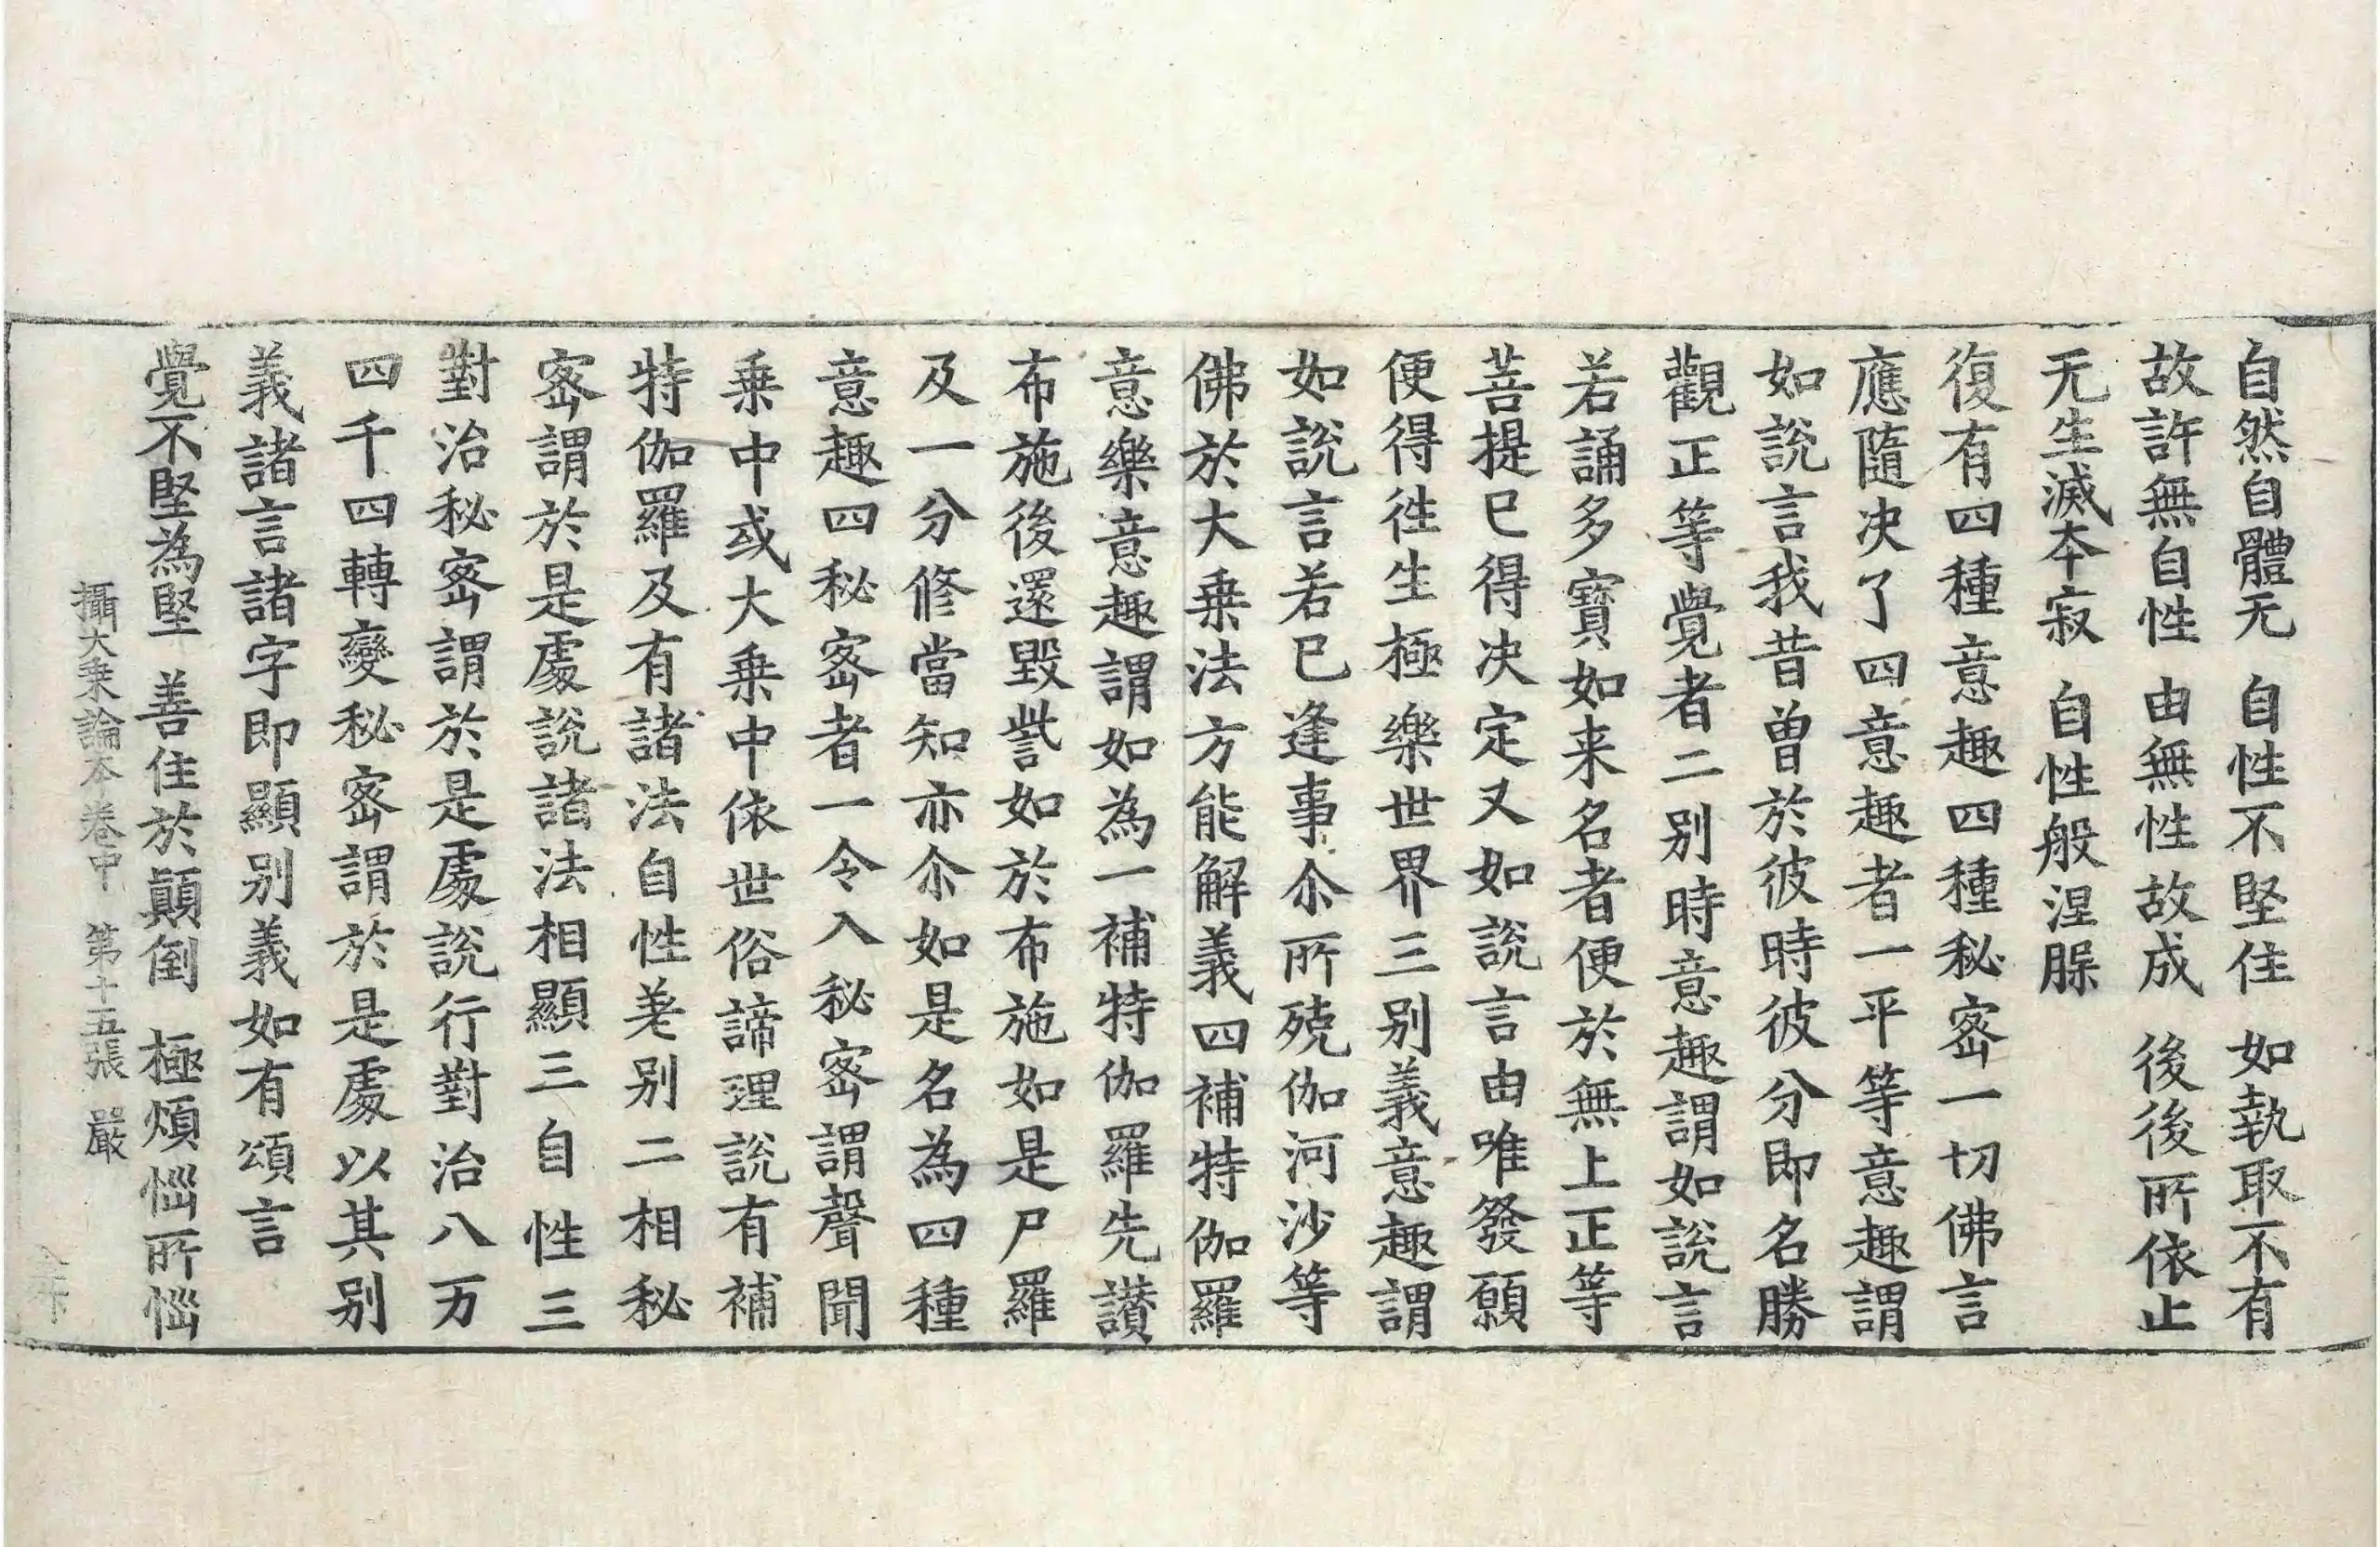 自然自體无　自性不堅住　如執取不有
故許無自性　由無性故成　後後所依止
无生滅本寂　自性般涅槃
復有四種意趣四種秘密一切佛言
應隨决了四意趣者一平等意趣謂
如說言我昔曾於彼時彼分即名勝
觀正等覺者二别時意趣謂如說言
若誦多寶如来名者便於無上正等
菩提已得决定又如說言由唯發願
便得徃生極樂世界三别義意趣謂
如說言若已逢事尒所殑伽河沙等
佛於大乗法方能解義四補特伽羅
意樂意趣謂如為一補特伽羅先讃
布施後還毀訾如於布施如是尸羅
及一分修當知亦尒如是名為四種
意趣四秘密者一令入秘密謂聲聞
乗中或大乗中依世俗諦理說有補
特伽羅及有諸法自性差别二相秘
密謂於是處說諸法相顯三自性三
對治秘密謂於是處說行對治八万
四千四轉變秘密謂於是處以其别
義諸言諸字即顯别義如有頌言
覺不堅為堅　善住於顚倒　極煩惱所惱
攝大乗論本卷中　第十五張　嚴